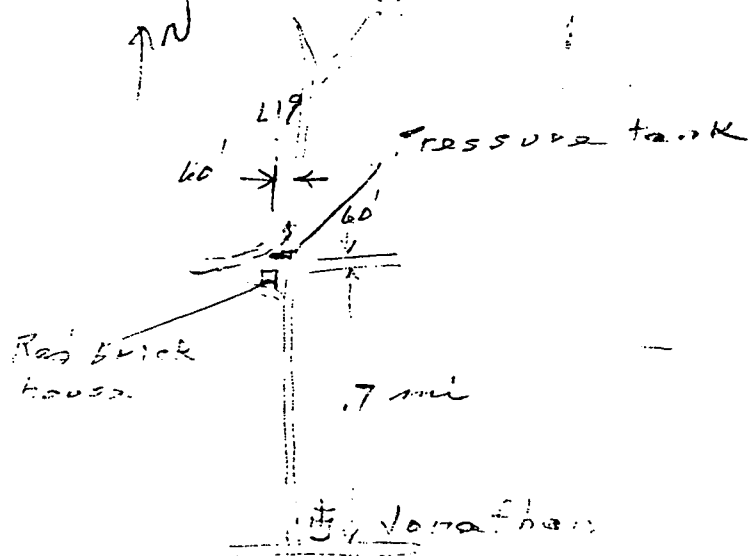 N
L19
60'
Pressure tank
60'
Red brick
house
.7 mi
Jonathan